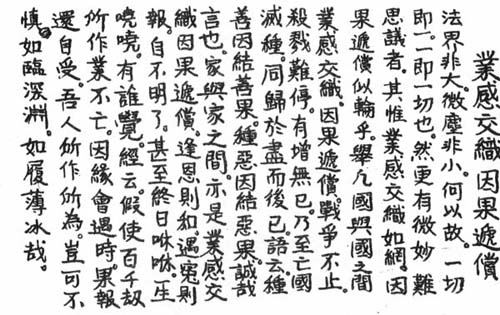 業感交織因果遞償
法界非大。微塵非小。何以故。一切
即一。一即一切也。然更有微妙難
思議者。其惟業感交織如網。因
果遞償似輪乎。舉凡國與國之間
業感交織。因果遞償。戰爭不止。
殺戮難停。有增無已。乃至亡國
滅種。同歸於盡而後已。語云。種
善因結善果。種惡因結惡果。誠哉
言也。家與家之間。亦是業感交
織。因果遞償。逢恩則和。遇冤則
報。自不明了。甚至終日咻咻。一生
嘵嘵。有誰覺。經云。假使百千劫
所作業不亡。因緣會遇時。果報
還自受。吾人所作所為。豈可不
慎。如臨深淵。如履薄冰哉。